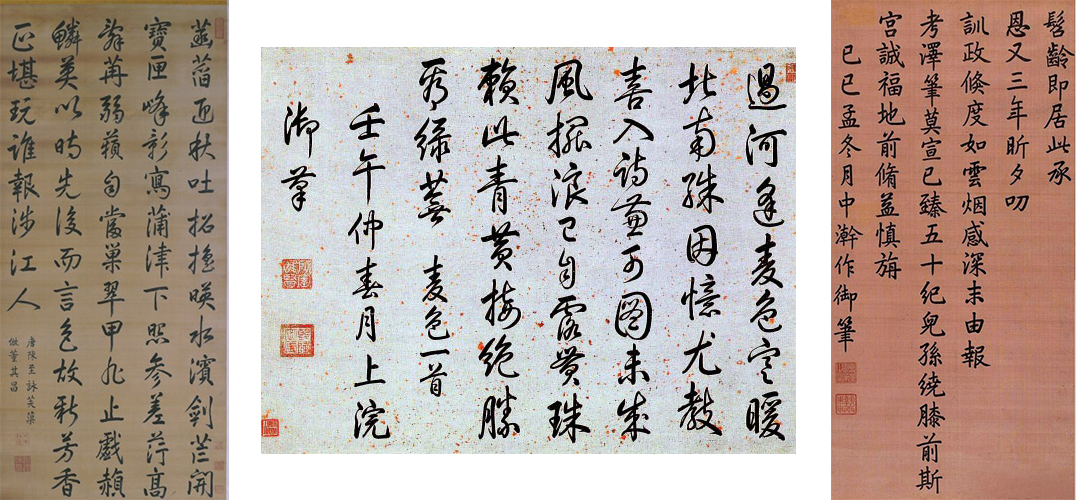 菡萏迎秋吐招搖映水濱劍芒開
寶匣峰影寫蒲津下照參差荇高
辭苒弱蘋自當巢翠甲非止戲赬
鱗莫以時先後而言色故新芳香
正堪玩誰報涉江人
唐陳至詠芙蕖
倣董其昌
過河逢麥色寒暖
北南殊因憶尤教
喜入詩兼可圖未成
風擺浪已自露黃珠
賴此青黃接絕勝
看綠蕪 麥色一首
壬午仲春月上浣
御筆
髫齡即居此承
恩又三年昕夕叨
訓政倏度如雲烟感深未由報
考澤筆莫宣已臻五十紀兒孫繞膝前斯
宮誠福地前脩益慎旃
己巳孟冬月中澣作御筆